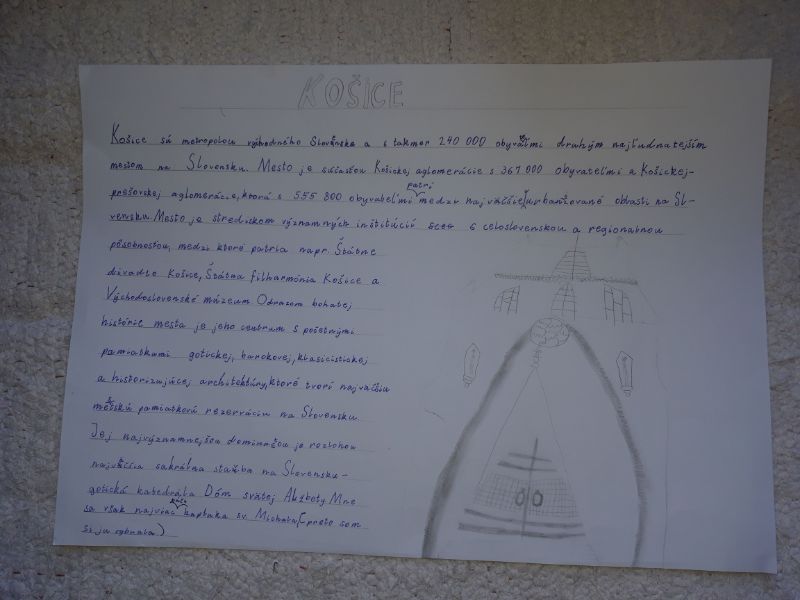 KOŠICE
Košice sú metropolou východného Slovenska a s takmer 240 000 obyvateľmi druhým najľudnatejším
mestom na Slovensku. Mesto je súčasťou Košickej aglomerácie s 367 000 obyvateľmi a Košickej-
prešovskej aglomerácie, ktorá s 555 800 obyvateľmi patrí medzi najväčšie urbanizované oblasti na Slo-
vensku. Mesto je strediskom významných inštitúcií s celoslovenskou a regionalnou
pôsobnosťou, medzi ktoré patria napr. Štátne
divadlo Košice, Štátna filharmónia Košice a
Východoslovenské múzeum Odrazom bohatej
histórie mesta je jeho centrum s početnými
pamiatkami gotickej, barokovej, klasicistickej
a historizujúcej architektúry, ktoré tvorí najväčšiu
mestskú pamiatkovú rezerváciu na Slovensku.
Jej najvýznamnejšou dominantou je rozlohou
najväčšia sakrálna stavba na Slovensku-
gotická katedrála Dóm svätej Alžbety Mne
sa však najviac páči kaplnka sv. Michala (preto som
si ju vybrala)